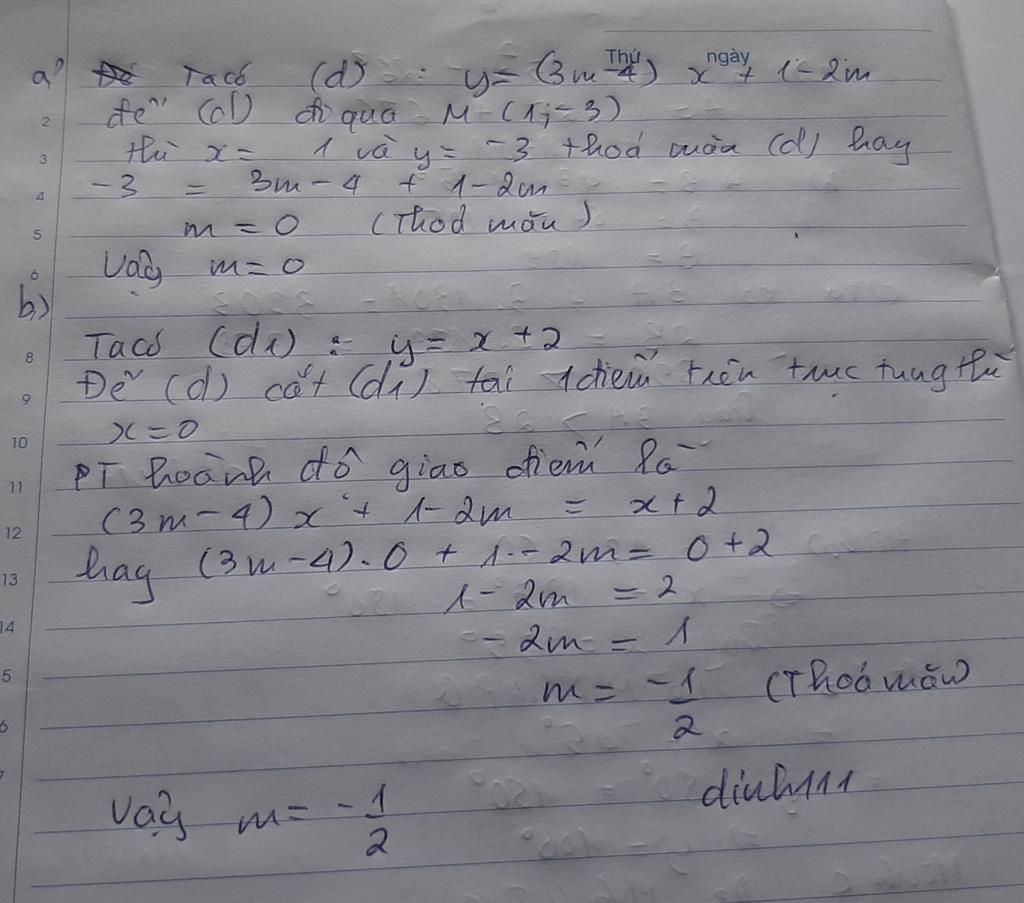 a) Ta có (d) : y = (3m-4) x + 1-2m
Thứ ngày
2 để (d) đi qua M (1; -3)
3 thì x = 1 và y = -3 thoả mãn (d) hay
4 -3 = 3m - 4 + 1-2m
5 m = 0 (Thoả mãn)
6 Vậy m = 0
b)
8 Ta có (d1) : y = x + 2
9 Để (d) cắt (d1) tại 1 điểm trên trục tung thì
10 x = 0
11 PT hoành độ giao điểm là
12 (3m-4) x + 1-2m = x+2
13 hay (3m-4).0 + 1-2m = 0+2
14 1-2m = 2
-2m = 1
5 m = -1/2 (Thoả mãn)
6
7
Vậy m = -1/2
dinh111